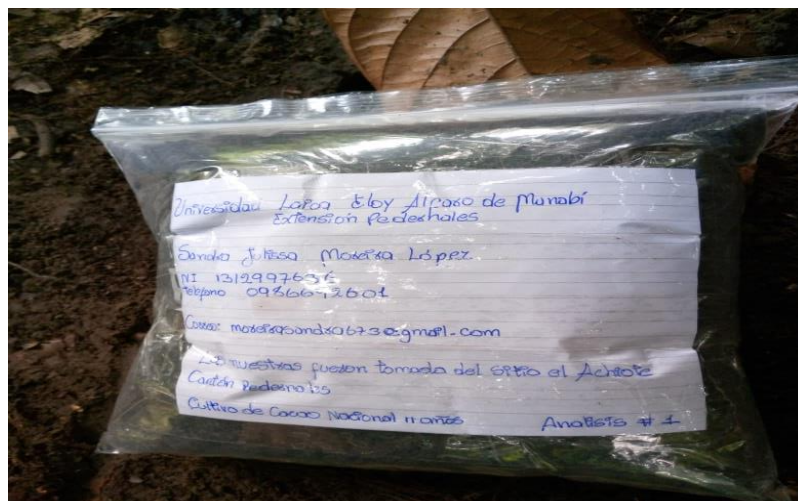 Universidad Laica Eloy Alfaro de Manabí
Extensión Pedernales
Sandra Julissa Moreira López
NI
Teléfono
Correo: moreirasandra673@gmail.com
Las muestras fueron tomada del sitio el Achiote
Cantón Pedernales
Cultivo de Cacao Nacional 11 años
Analisis # 1